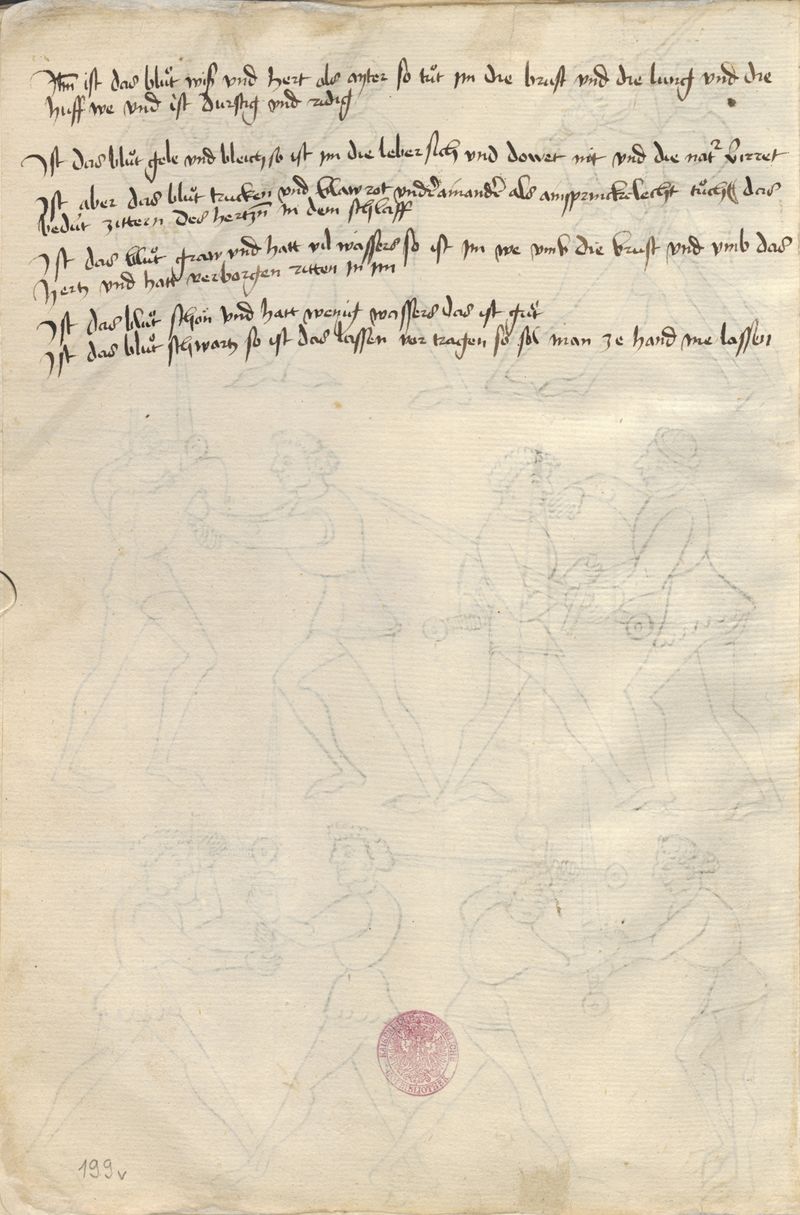 Itm ist das blůt wiß vnd hert als ayter so tůt im die brust vnd die lung vnd die
huff we vnd ist durstig vnd ridig
Ist das blůt gele vnd bleich so ist im die leber sich vnd dowet nit vnd die natr
Ist aber das blůt trucken vnd blaw rot vndr ainandr als ain sprinckelecht tůch das
bedút zittern des hertzn in dem schlaff
Ist das blůt graw vnd hatt vil wassers so ist im we vmb die brust vnd vmb das
Hertz vnd hatt verborgen ritten in im
Ist das blůt schön vnd hatt wenig wassers das ist gůt
Ist das blůt schwartz so ist das lassen vor tragen so sol man ze hand me lassen
199v